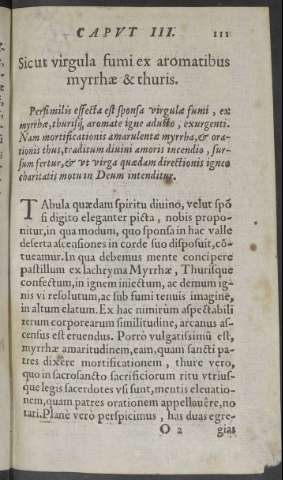 CAPVT III. 111
Sicut virgula fumi ex aromatibus
myrrhæ & thuris.
Persimilis effecta est sponsa virgulæ fumi, ex
myrrhæ, thurisq́, aromate igne adusto, exurgenti.
Nam mortificationis amarulenta myrrha, & ora-
tionis thus, traditum diuini amoris incendio, sur-
sum fertur, & vt virga quædam directionis igneo
charitatis motu in Deum intenditur.
TAbula quædam spiritu diuino, velut spõ
si digito eleganter picta, nobis propo-
nitur, in qua modum, quo sponsa in hac valle
deserta ascensiones in corde suo disposuit, cõ-
tueamur. In qua debemus mente concipere
pastillum ex lachryma Myrrhæ, Thurisque
confectum, in ignem iniectum, ac demum ig-
nis vi resolutum, ac sub fumi tenuis imagine,
in altum elatum. Ex hac nimirùm aspectabili
rerum corporearum similitudine, arcanus as-
census est eruendus. Porrò vulgatissimũ est,
myrrhæ amaritudinem, eam, quam sancti pa-
tres dixêre mortificationem, thure vero,
quo in sacrosancto sacrificiorum ritu vtrius-
que legis sacerdotes vsi sunt, mentis eleuatio-
nem, quam patres orationem appellauêre, no
tari. Planè verò perspicimus, has duas egre-
O 2 giás